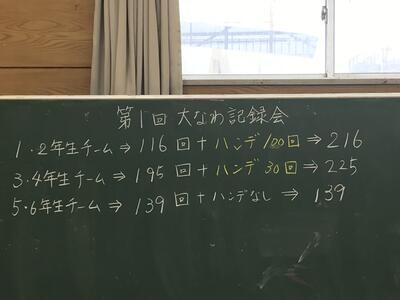 第1回 大なわ記録会
1・2年生チーム⇒116回+ハンデ100回⇒216
3・4年生チーム⇒195回+ハンデ30回⇒225
5・6年生チーム⇒139回+ハンデなし⇒139